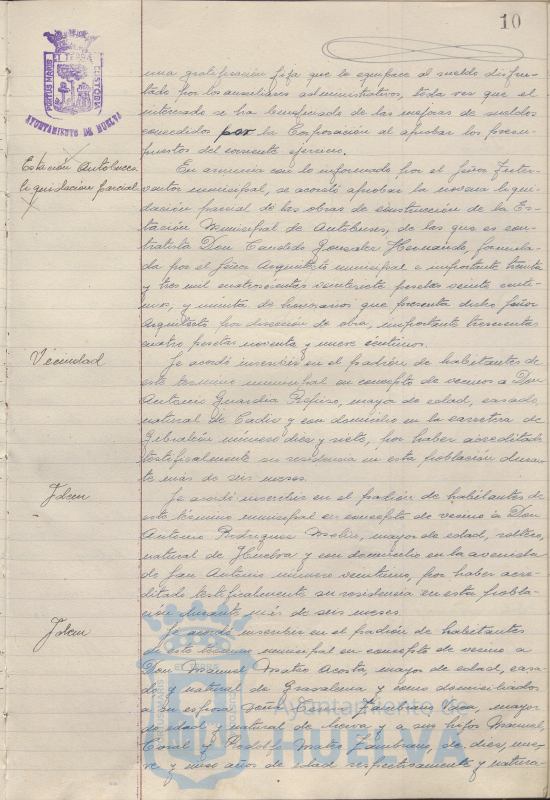 10
PORTUS MARIS
ET TERRAE
CUSTODIA
AYUNTAMIENTO DE HUELVA
una gratificación fija que le equipare al sueldo disfru-
tado por los auxiliares administrativos, toda vez que el
interesado se ha beneficiado de las mejoras de sueldos
concedidos por la Corporación al aprobar los presu-
puestos del corriente ejercicio.
Estación Autobuses
liquidación parcial
En armonía con lo informado por el Señor Inter-
ventor municipal, se acordó aprobar la novena liqui-
dación parcial de las obras de construcción de la Es-
tación Municipal de Autobuses, de las que es con-
tratista Don Candido Gonzalez Hernando, formula-
da por el Señor Arquitecto municipal e importante treinta
y tres mil cuatrocientas veintisiete pesetas veinte cénti-
mos, y minuta de honorarios que presenta dicho Señor
Arquitecto por dirección de obra, importante trescientas
cuatro pesetas noventa y nueve céntimos.
Vecindad
Se acordó inscribir en el padrón de habitantes de
este término municipal en concepto de vecino a Don
Antonio Guardia mayor de edad, casado,
natural de Cadiz y con domicilio en la carretera de
Gibraleón número diez y siete, por haber acreditado
testificalmente su residencia en esta población duran-
te más de seis meses.
Idem
Se acordó inscribir en el padrón de habitantes de
este término municipal en concepto de vecino a Don
Antonio Rodriguez mayor de edad, soltero,
natural de Huelva y con domicilio en la avenida
de San Antonio número veintiuno, por haber acre-
ditado testificalmente su residencia en esta pobla-
ción durante más de seis meses.
Idem
Se acordó inscribir en el padrón de habitantes
de este término municipal en concepto de vecino a
Don Manuel Mateo Acosta, mayor de edad, casa-
do y natural de y como domiciliados
a su esposa Doña Carmen Zambrano mayor
de edad y natural de y a sus hijos Manuel,
y Rodolfo Mateo Zambrano, de diez, nue-
ve y once años de edad respectivamente y natura-
Ayuntamiento de
HUELVA